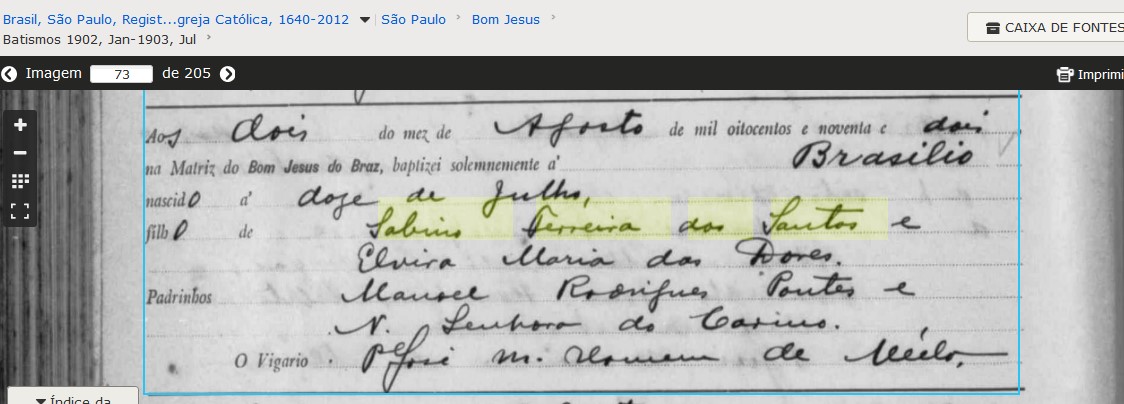 Brasil, São Paulo, Regist...greja Católica, 1640-2012 São Paulo Bom Jesus
Batismos 1902, Jan-1903, Jul
CAIXA DE FONTES
Imagem 73 de 205 Imprimi
Aos dois do mez de Agosto de mil oitocentos e noventa e dois
na Matriz do Bom Jesus do Braz, baptizei solemnemente a' Brasilio
nascido a' doze de Julho,
filho de Sabino Ferreira dos Santos e
Elvira Maria das Dores.
Padrinhos Manoel Rodrigues Pontes e
N. Senhora do Carmo.
O Vigario Pe José M. Homem de Mello,
Índice da